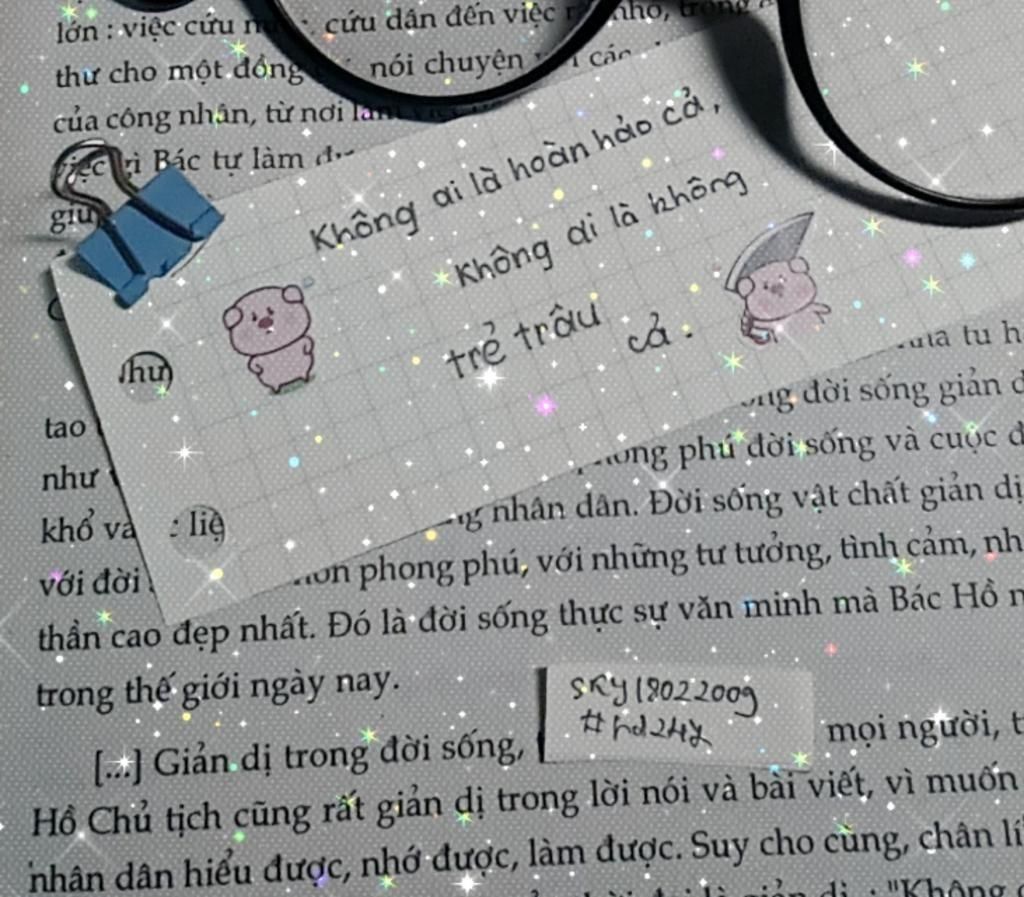 lớn : việc cứu cứu dân đến việc nhỏ, trong
thư cho một đồng nói chuyện
của công nhân, từ nơi làm
việc gì Bác tự làm
Không ai là hoàn hảo cả,
Không ai là không
trẻ trâu cả.
đời sống giản
tao
như phú đời sống và cuộc
khổ nhân dân. Đời sống vật chất giản dị
với đời phong phú, với những tư tưởng, tình cảm,
thần cao đẹp nhất. Đó là đời sống thực sự văn minh mà Bác Hồ
trong thế giới ngày nay.
SRY18022009
#hd247
[...] Giản dị trong đời sống, mọi người,
Hồ Chủ tịch cũng rất giản dị trong lời nói và bài viết, vì muốn
nhân dân hiểu được, nhớ được, làm được. Suy cho cùng, chân lí
"Không